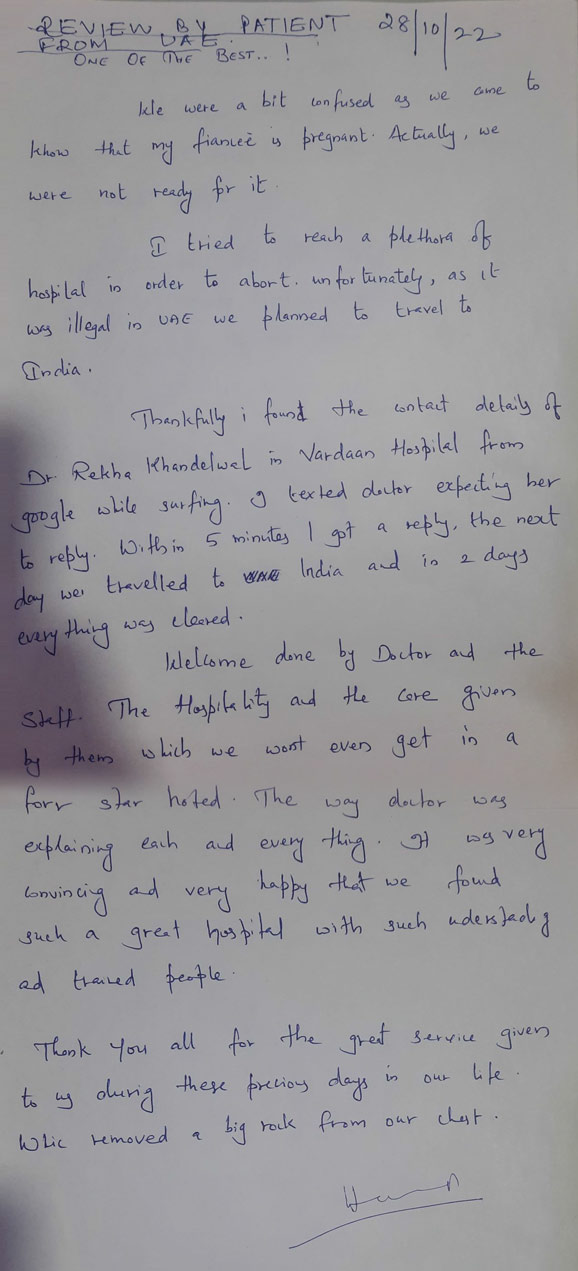 REVIEW BY PATIENT 28/10/22
FROM UAE.
ONE OF THE BEST..!
We were a bit confused as we came to
know that my fianceè is pregnant. Actually, we
were not ready for it.
I tried to reach a plethora of
hospital in order to abort. unfortunately, as it
was illegal in UAE we planned to travel to
India.
Thankfully i found the contact details of
Dr. Rekha Khandelwal in Vardaan Hospital from
google while surfing. I texted doctor expecting her
to reply. Within 5 minutes I got a reply, the next
day we travelled to India and in 2 days
everything was cleared.
Welcome done by Doctor and the
Staff. The Hospitality and the care given
by them which we wont even get in a
forr star hoted. The way doctor was
explaining each and every thing. It was very
convincing ad very happy that we found
such a great hospital with such understadg
ad trained people.
Thank you all for the great service given
to us during these precious days in our life.
Whic removed a big rock from our chest.